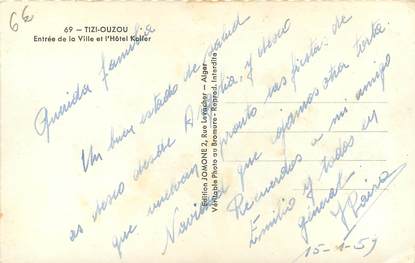 6€
69 — TIZI-OUZOU
Entrée de la Ville et l'Hôtel Koller
Querida familia
Un buen estado de salud
os deseo desde Argelia, y deseo
que vuelvan pronto las fiestas de
Navidad que cojamos otra torta.
Recuerdos a mi amigo
Emilio y todos en
general
15-1-59
Edition JOMONE 2, Rue Levacher - Alger
Véritable Photo au Bromure - Reprod. Interdite